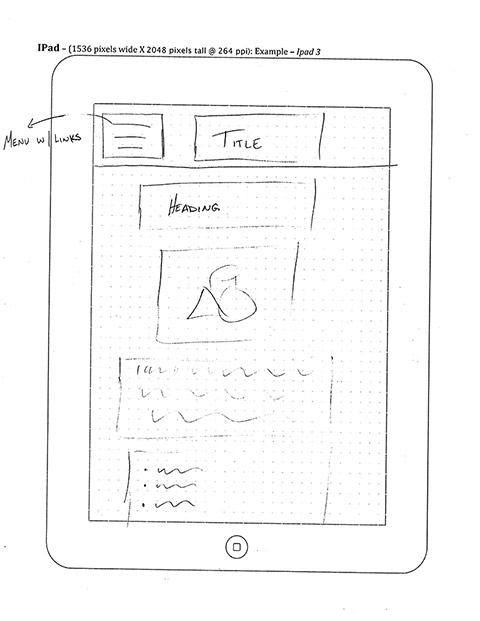 IPad – (1536 pixels wide X 2048 pixels tall @ 264 ppi): Example – Ipad 3
MENU W/ LINKS
TITLE
HEADING